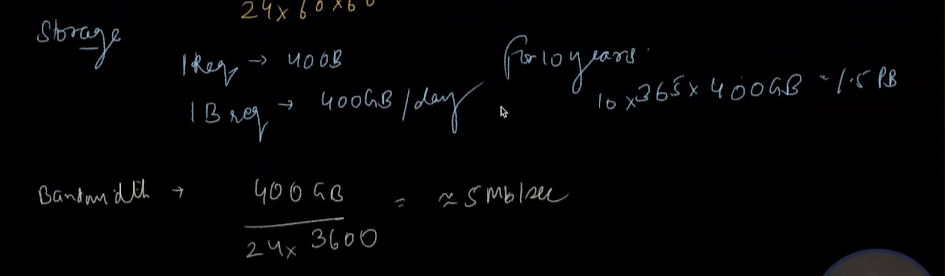 24 x 60 x 60
Storage
1 Req → 400B
1 B req → 400GB/day
for 10 years.
10 x 365 x 400GB = 1.5 PB
Bandwidth →
400 GB
24 x 3600
= ≈ 5 Mb/sec